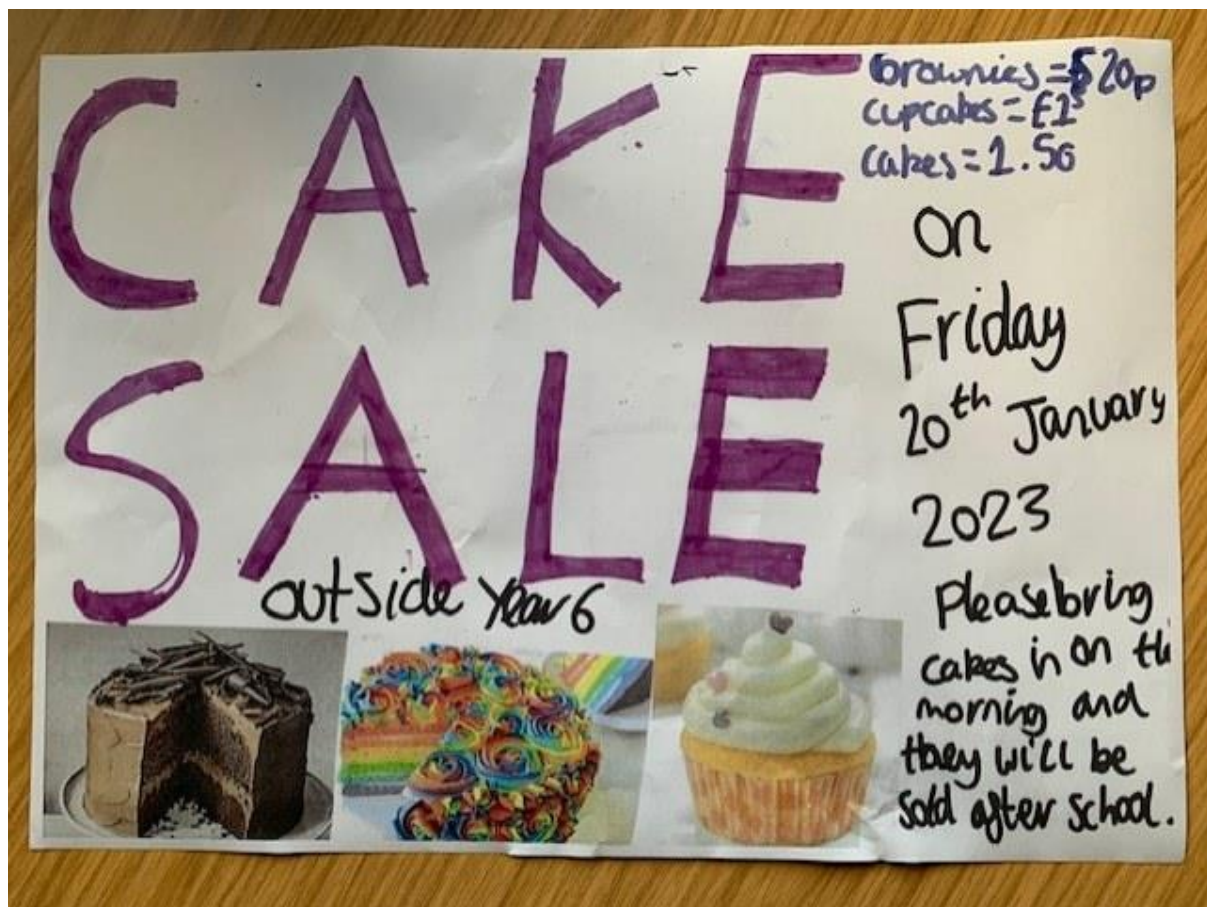 CAKE
SALE
outside Year 6
brownies = 20p
cupcakes = £1
cakes = 1.50
on
Friday
20th January
2023
Please bring
cakes in on the
morning and
they will be
sold after school.